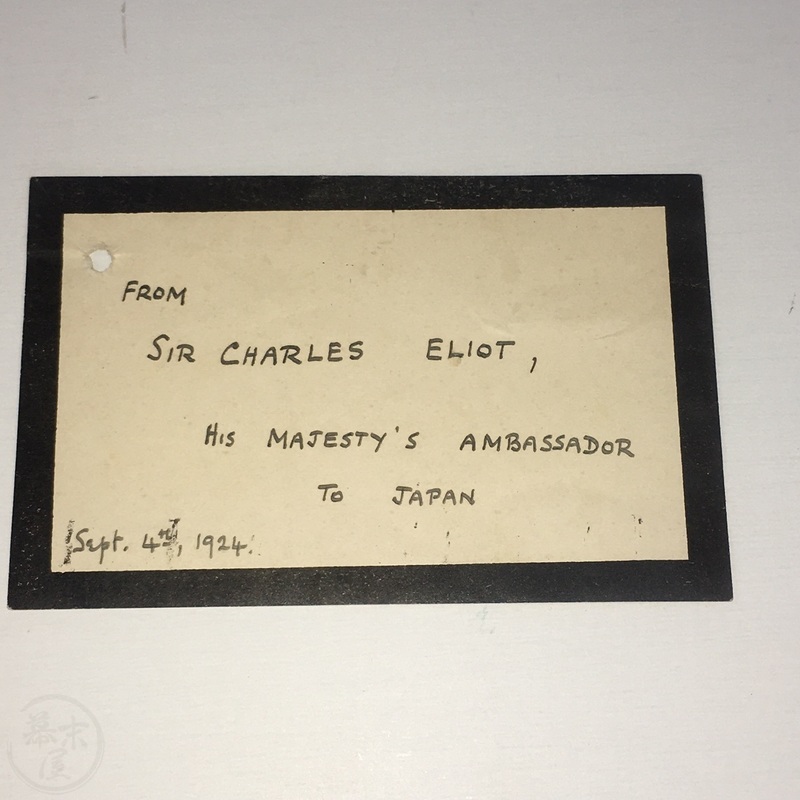 FROM
SIR CHARLES ELIOT,
HIS MAJESTY'S AMBASSADOR
TO JAPAN
Sept. 4th, 1924.
幕末
屋